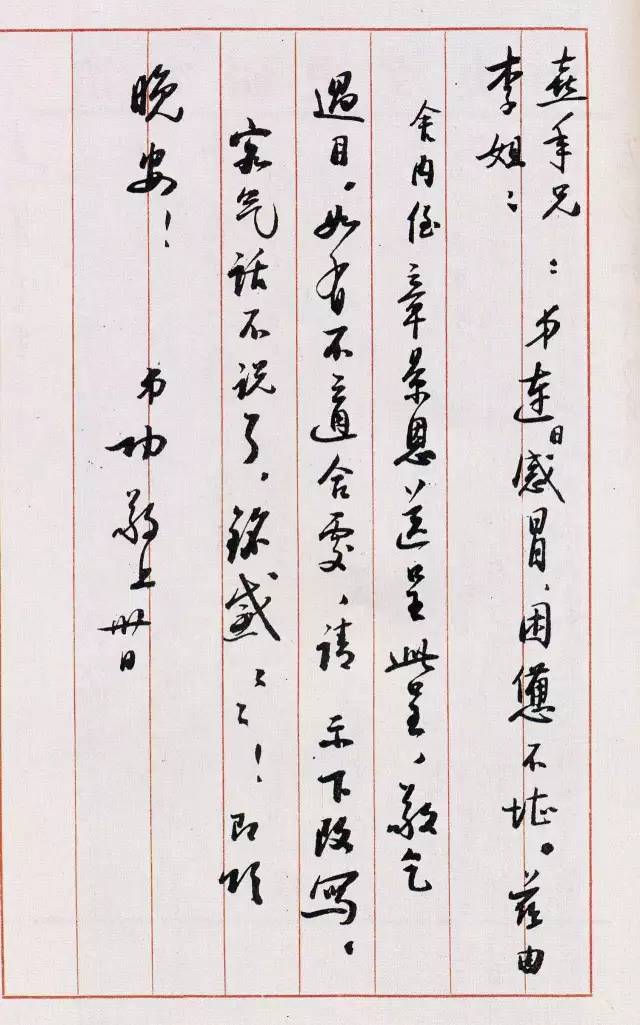 熹年兄
李姐：
：弟连日感冒，困惫不堪。兹由
舍内侄章景恩送呈此呈，敬乞
过目。如有不适合处，请 示下改写。
客气话不说了，铭感〻〻！即颂
晚安！
弟功敬上 卅日